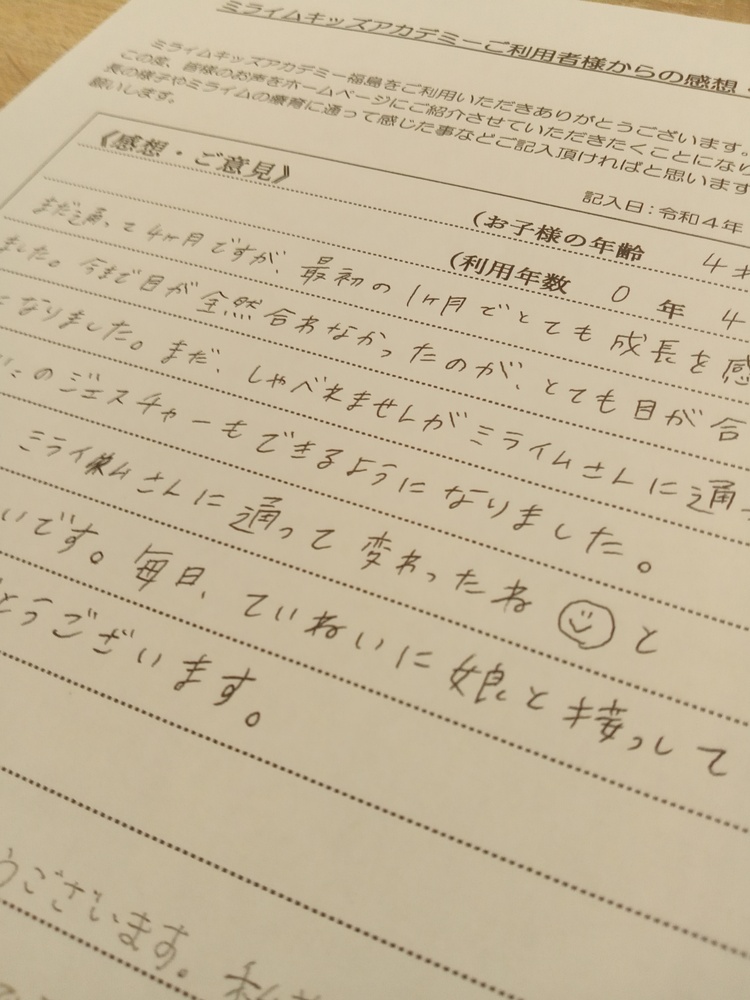 ミライムキッズアカデミーご利用者様からの感想・
ミライムキッズアカデミー福島をご利用いただきありがとうございます。
この度、皆様のお声をホームページにご紹介させていただきたくことになり
長の様子やミライムの療育に通って感じた事などご記入頂ければと思います
願いします。
記入日：令和４年
《感想・ご意見》
(お子様の年齢 4才
(利用年数 0 年 4
まだ通って4ヶ月ですが、最初の1ヶ月でとても成長を感
ました。今まで目が全然合わなかったのが、とても目が合
になりました。まだ、しゃべれませんがミライムさんに通っ
のジェスチャーもできるようになりました。
ミライムさんに通って変わったね☺と
いです。毎日、ていねいに娘と接っして
とうございます。
うございます。私